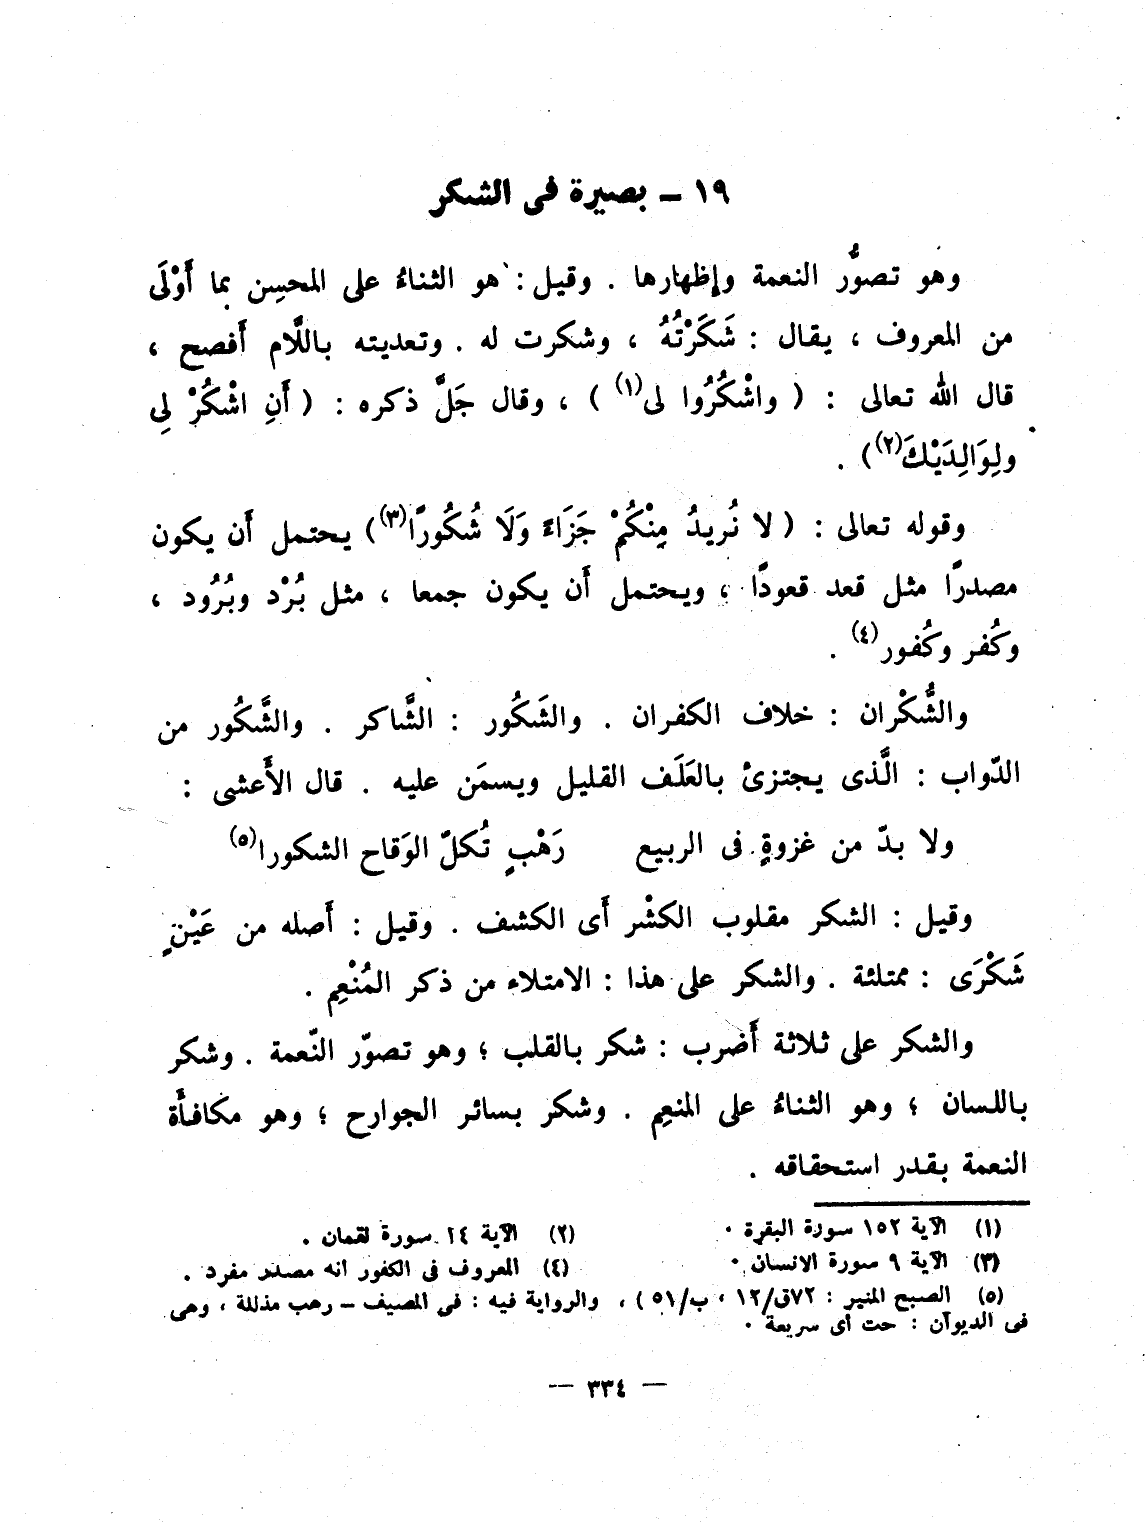 ١٩ ــ بصيرة فى الشكر
وهو تصوُّر النعمة وإظهارها . وقيل : هو الثناءُ على المحسِن بما أَوْلَى
من المعروف ، يقال : شَكَرْتُهُ ، وشكرت له . وتعديته باللَّام أَفصح ،
قال الله تعالى : ( واشْكُرُوا لى(١) ) ، وقال جَلَّ ذكره : ( أَنِ اشْكُرْ لِى
ولِوَالِدَيْكَ(٢) ) .
وقوله تعالى : ( لا نُريدُ مِنْكُمْ جَزَاءً وَلَا شُكُورًا(٣) ) يحتمل أَن يكون
مصدرًا مثل قعد قعودًا ، ويحتمل أَن يكون جمعا ، مثل بُرْد وبُرُود ،
وكُفر وكُفور(٤) .
والشُّكْران : خلاف الكفران . والشَكُور : الشَّاكر . والشَّكُور من
الدّواب : الَّذى يجتزئ بالعَلَف القليل ويسمَن عليه . قال الأَعشى :
ولا بدّ من غزوةٍ فى الربيع رَهْبٍ تُكلّ الوَقاح الشكورا(٥)
وقيل : الشكر مقلوب الكشْر أَى الكشف . وقيل : أَصله من عَيْنٍ
شَكْرَى : ممتلئة . والشكر على هذا : الامتلاء من ذكر المُنْعِم .
والشكر على ثلاثة أَضرب : شكر بالقلب ؛ وهو تصوّر النّعمة . وشكر
باللسان ؛ وهو الثناءُ على المنعِم . وشكر بسائر الجوارح ؛ وهو مكافأَة
النعمة بقدر استحقاقه .
(١) الآية ١٥٢ سورة البقرة . (٢) الآية ١٤ سورة لقمان .
(٣) الآية ٩ سورة الانسان . (٤) المعروف فى الكفور انه مصدر مفرد .
(٥) الصبح المنير : ٧٢ق/١٢ ، ب/٥١ ) ، والرواية فيه : فى المصيف ــ رهب مذللة ، وهى
فى الديوآن : حت أى سريعة .
— ٣٣٤ —